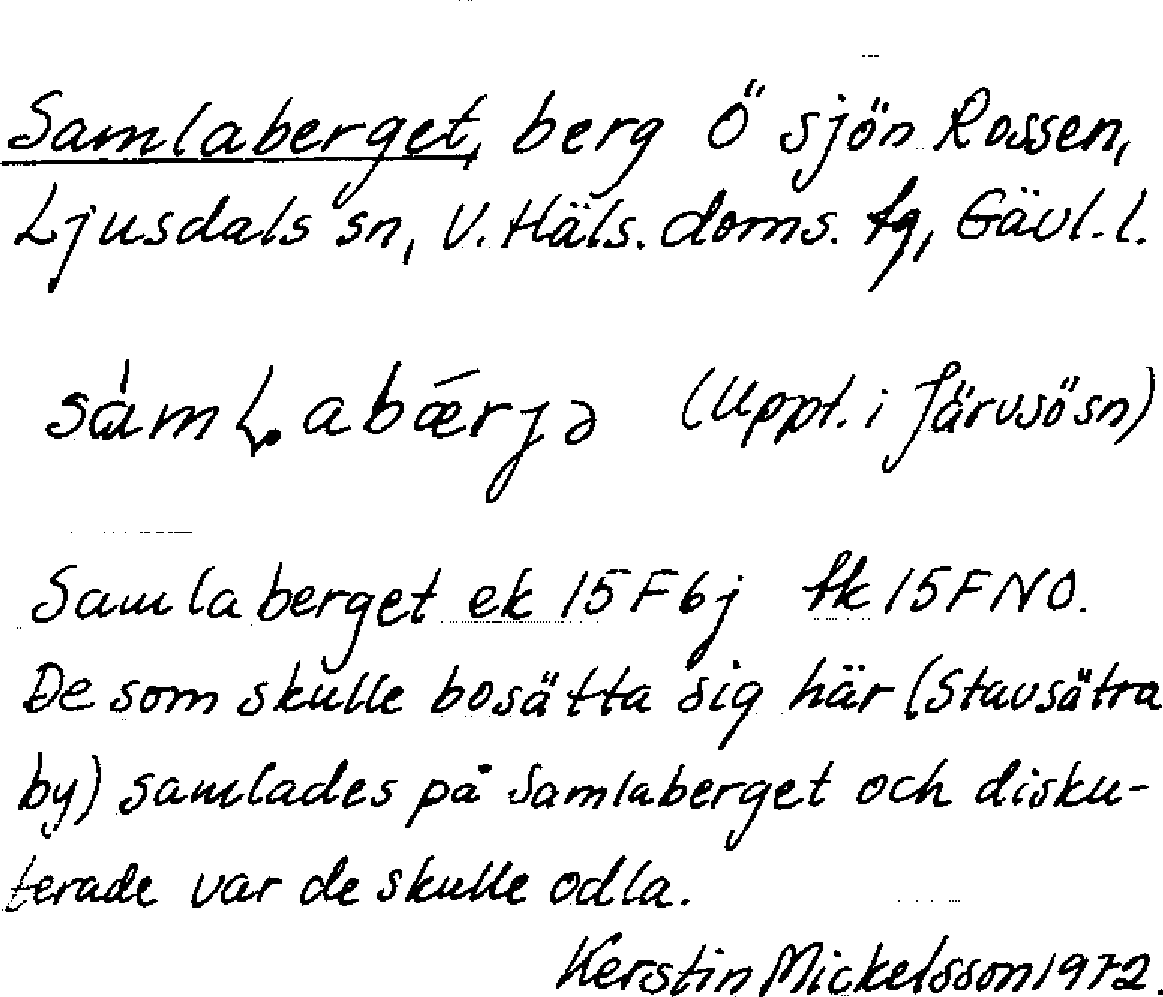 Samlaberget, berg Ö sjön Rossen,
Ljusdals sn, V. Häls. doms. tg, Gävl. l.
(Uppt. i Järvsö sn)
Samlaberget ek 15F6j tk 15FNO.
De som skulle bosätta sig här (Stavsätra
by) samlades på Samlaberget och disku-
terade var de skulle odla.
Kerstin Mickelsson 1972.